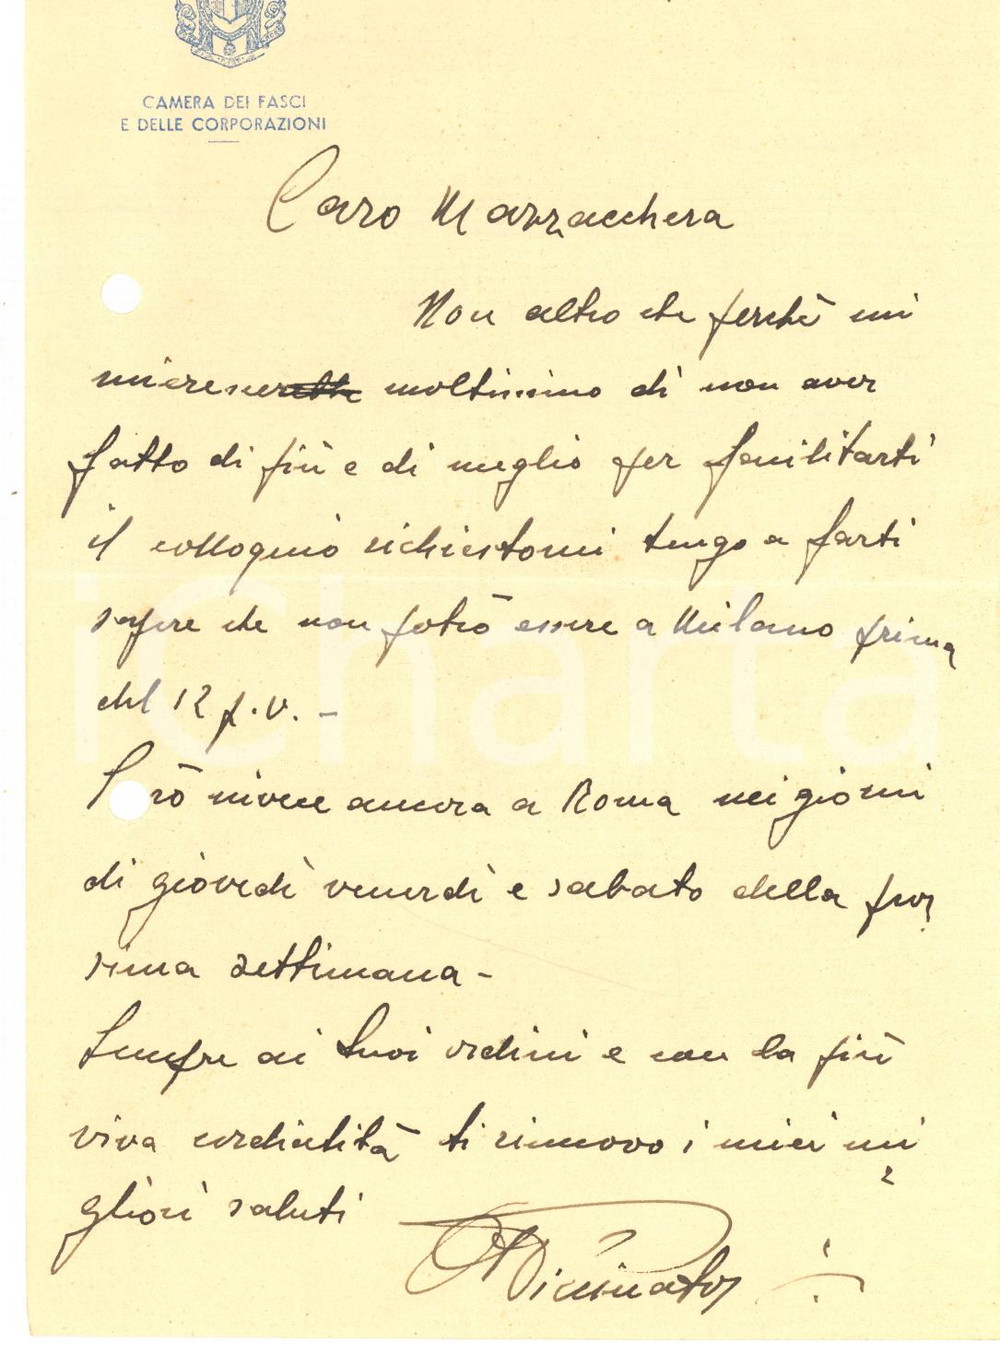 CAMERA DEI FASCI
E DELLE CORPORAZIONI
Caro Mazzacchera
Non altro che perchè mi
moltissimo di non aver
fatto di più e di meglio per facilitarti
il colloquio richiestomi tengo a farti
sapere che non potrò essere a Milano prima
del 12 p.v. -
rò invece ancora a Roma nei giorni
di giovedì venerdì e sabato della pros
sima settimana -
Sempre ai tuoi ordini e con la più
viva cordialità ti rinnovo i miei mi
gliori saluti
iCharta